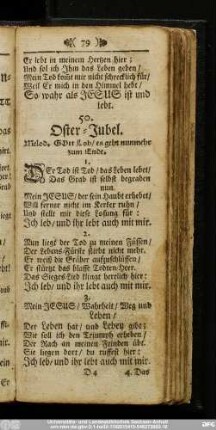 79
Er lebt in meinem Hertzen hier :
Und sol ich Ihm das Leben geben /
Mein Tod kömt mir nicht schrecklich für /
Weil Er mich in den Himmel hebt /
So wahr als JESUS ist und
lebt.
50.
Oster-Jubel.
Melod. GOtt Lob / es geht nunmehr
zum Ende.
1.
DEr Tod ist Tod / das Leben lebet /
Das Grab ist selbst begraben
nun.
Mein JESUS / der sein Haubt erhebet /
Will ferner nicht im Kerker ruhn /
Und stellt mir diese Losung für :
Ich leb / und ihr lebt auch mit mir.
2.
Nun liegt der Tod zu meinen Füssen /
Der Lebens-Fürst stirbt nicht mehr.
Er weiß die Gräber aufzuschliissen /
Er stürtzt das blasse Todten-Heer.
Das Sieges-Lied klingt herrlich hier :
Ich leb / und ihr lebt auch mit mir.
3.
Mein JESUS / Wahrheit / Weg und
Leben /
Der Leben hat / und Leben gibt:
Wie soll ich den Triumph erheben /
Der Rach an meinen Feinden übt.
Sie liegen dort / du ruffest hier :
Ich leb / und ihr lebt auch mit mir.
D 4
4. Das